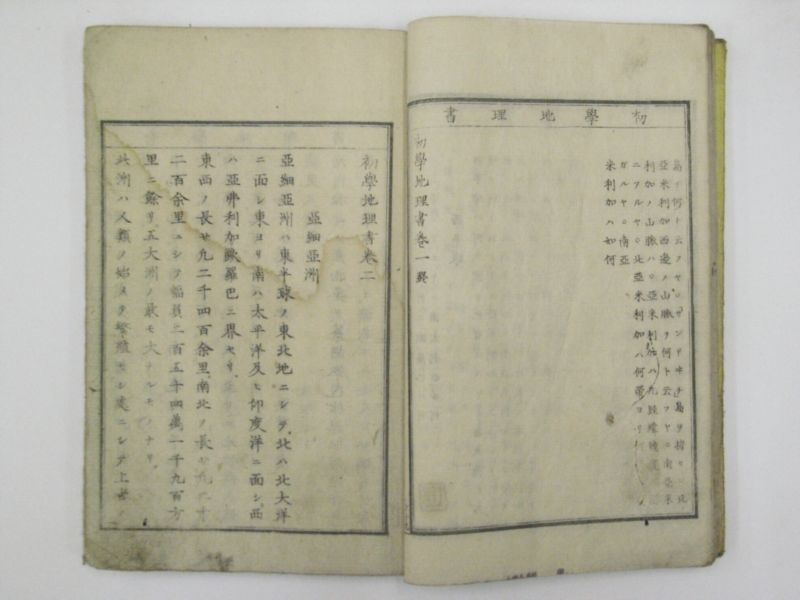 初學地理書
島ヲ何ト云フヤ
亞米利加西邊ノ山脈ヲ何ト云フヤ○南亞米
利加ノ山脈ハ○亞米利加ハ
ニアルヤ○北亞米利加ハ何帶
ガルヤ○南亞
米利加ハ如何
初學地理書卷一終
初學地理書卷二
亞細亞洲
亞細亞洲ハ東半球ノ東北地ニシテ、北ハ北大洋
ニ面シ東ヨリ南ハ太平洋及ヒ印度洋ニ面シ西
ハ亞弗利加歐羅巴ニ界セリ、
東西ノ長サ九二千四百余里、南北ノ長サ九二千
二百余里ニシテ幅員二百五十四萬一千九百方
里ニ餘リ五大洲ノ最モ大ナルモノナリ、
此洲ハ人類ノ始メテ繁殖セシ處ニシテ上古ノ